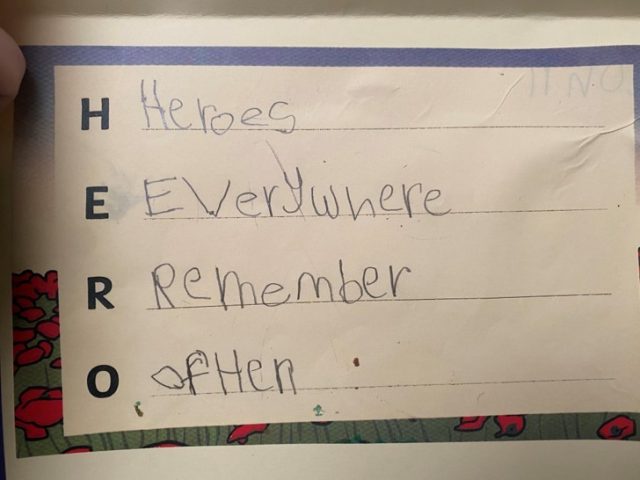 H Heroes
E EVerywhere
R Remember
O ofHen